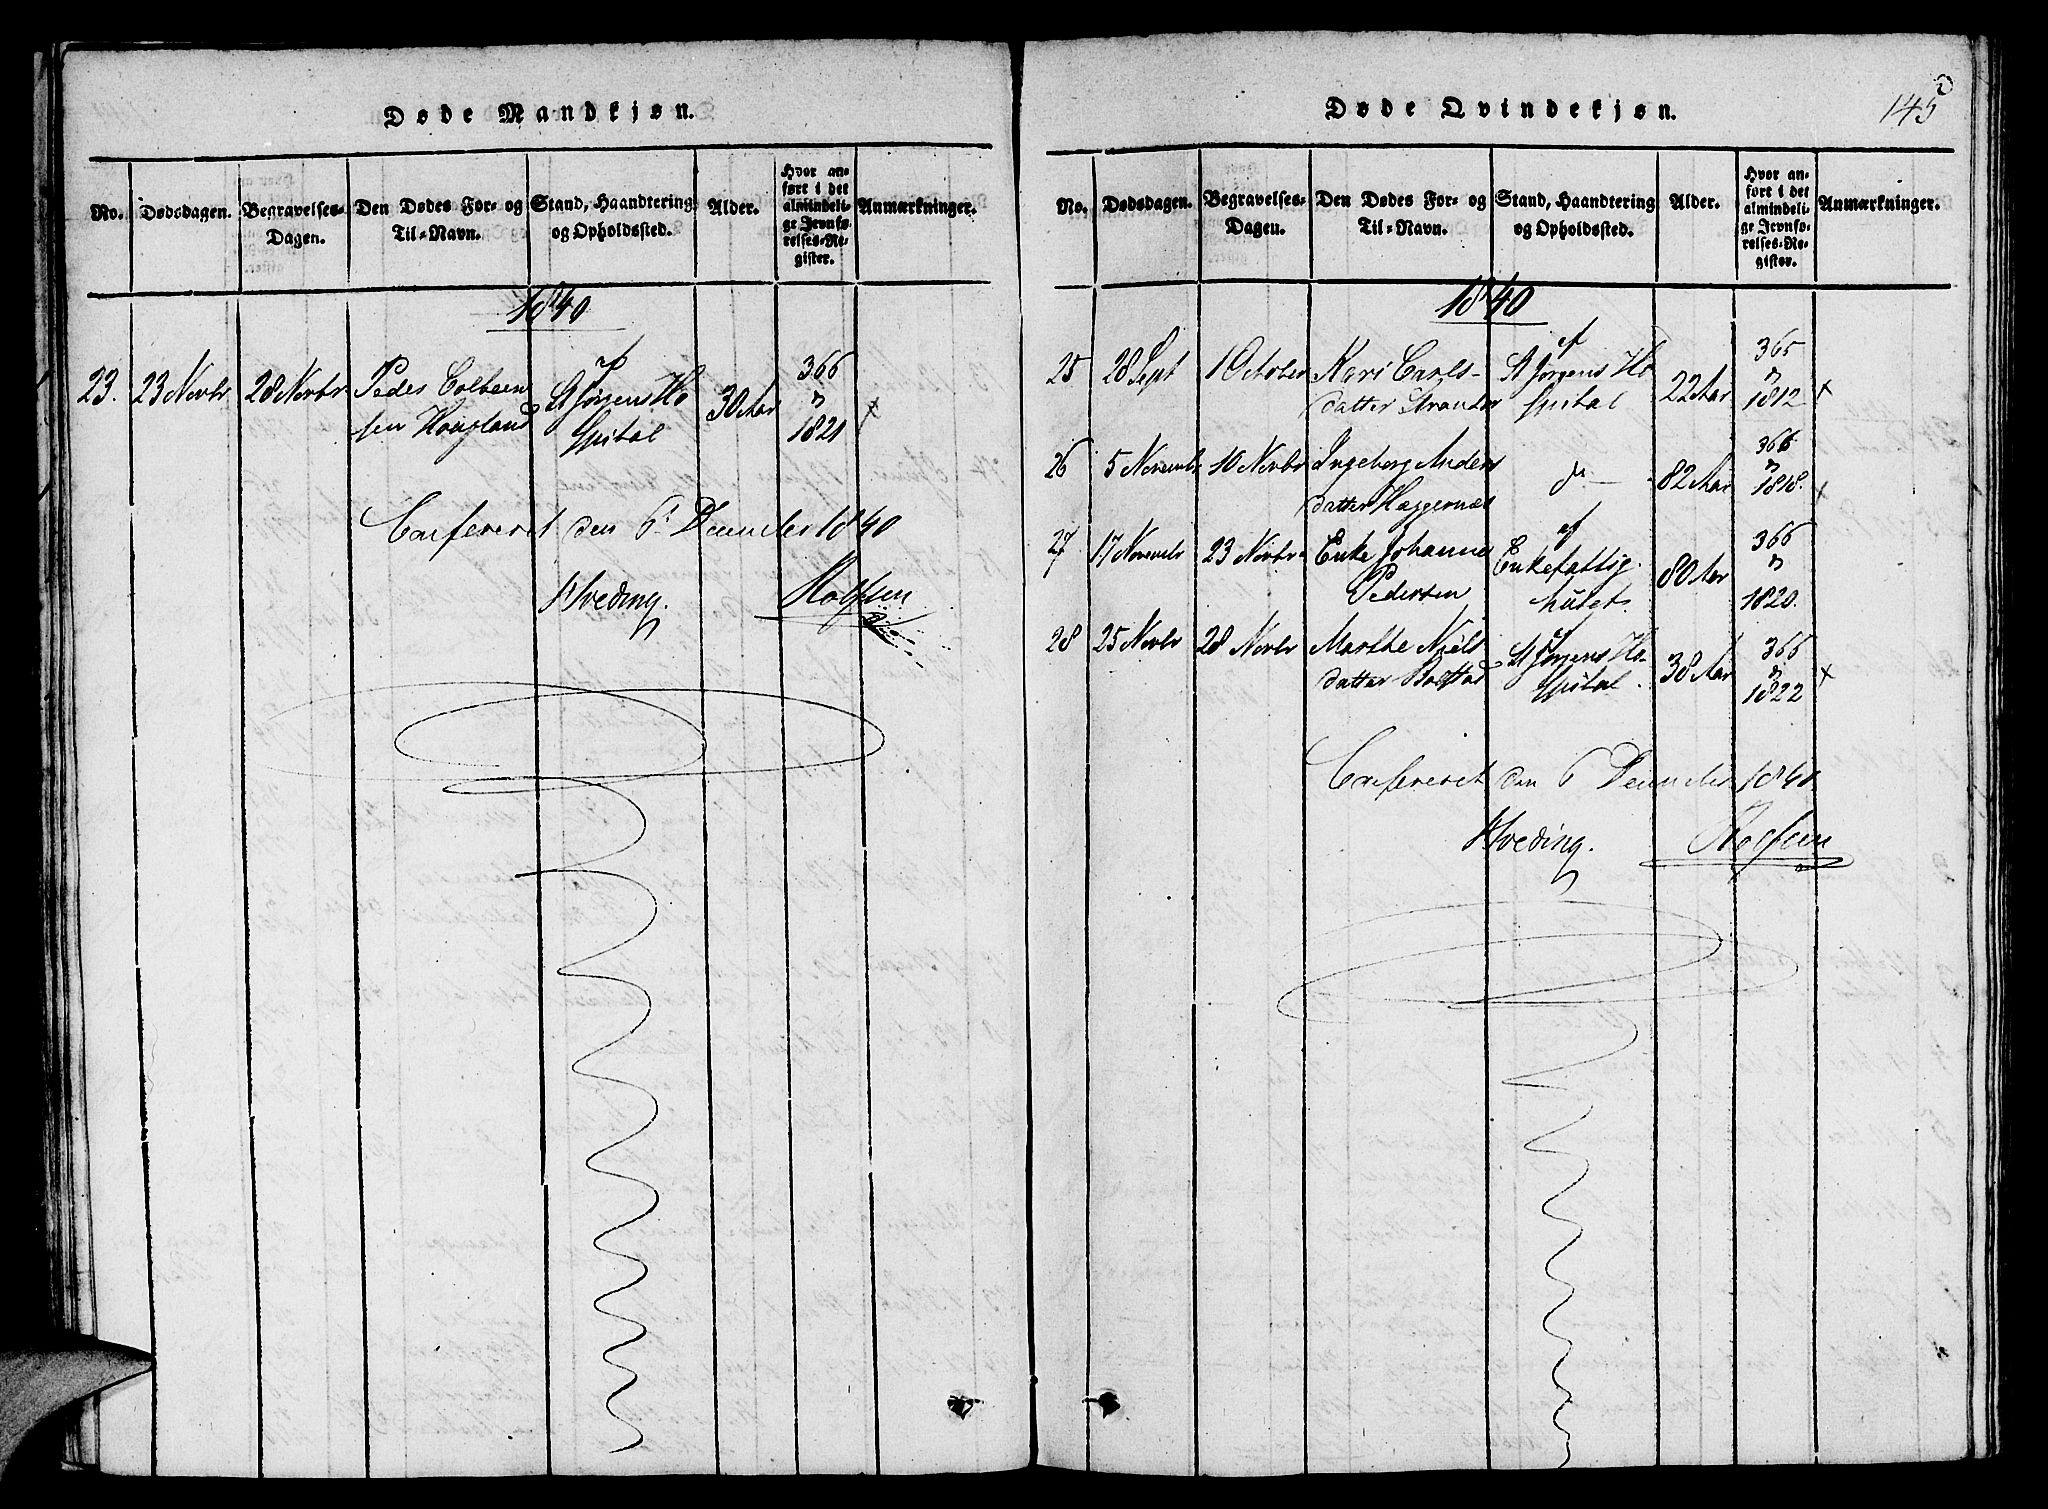 Døde Mandkjøn.
No.
Dødsdagen.
Begravelses-
Dagen.
Den Dødes For- og
Til-Navn.
Stand, Haandtering
og Opholdssted.
Alder.
Hvor an-
ført i det
almindeli-
ge Jevnfø-
relses-Re-
gister.
Anmærkninger.
1840
23. 23 Novbr 28 Novbr Peder Colbeen
sen Hougland
af
St Jørgens Ho
spital
30 Aar
366
n
1821
x
Confereret den 6t December 1840
Hveding. Rolfsen
Døde Qvindekjøn.
145
No.
Dødsdagen.
Begravelses-
Dagen.
Den Dødes For- og
Til-Navn.
Stand, Haandtering
og Opholdssted.
Alder.
Hvor an-
ført i det
almindeli-
ge Jevnfø-
relses-Re-
gister.
Anmærkninger.
1840
25 28 Sept 1 October Kari Carls-
datter Strander
af
St Jørgens Ho
spital
22 Aar
365
n
1812
x
26 5 Novembr 10 Novbr Ingeborg Anders
datter Haggernæs
do
82 Aar
366
n
1818.
x
27 17 Novembr 23 Novbr Enke Johanne
Pedersen
af
Enkefattig-
huset
80 Aar
366
n
1820.
28 25 Novbr 28 Novbr Marthe Niels
datter Bolstad
af
St Jørgens Ho-
spital
38 Aar
366
n
1822
x
Confereret den 6 December 1840
Hveding. Rolfsen